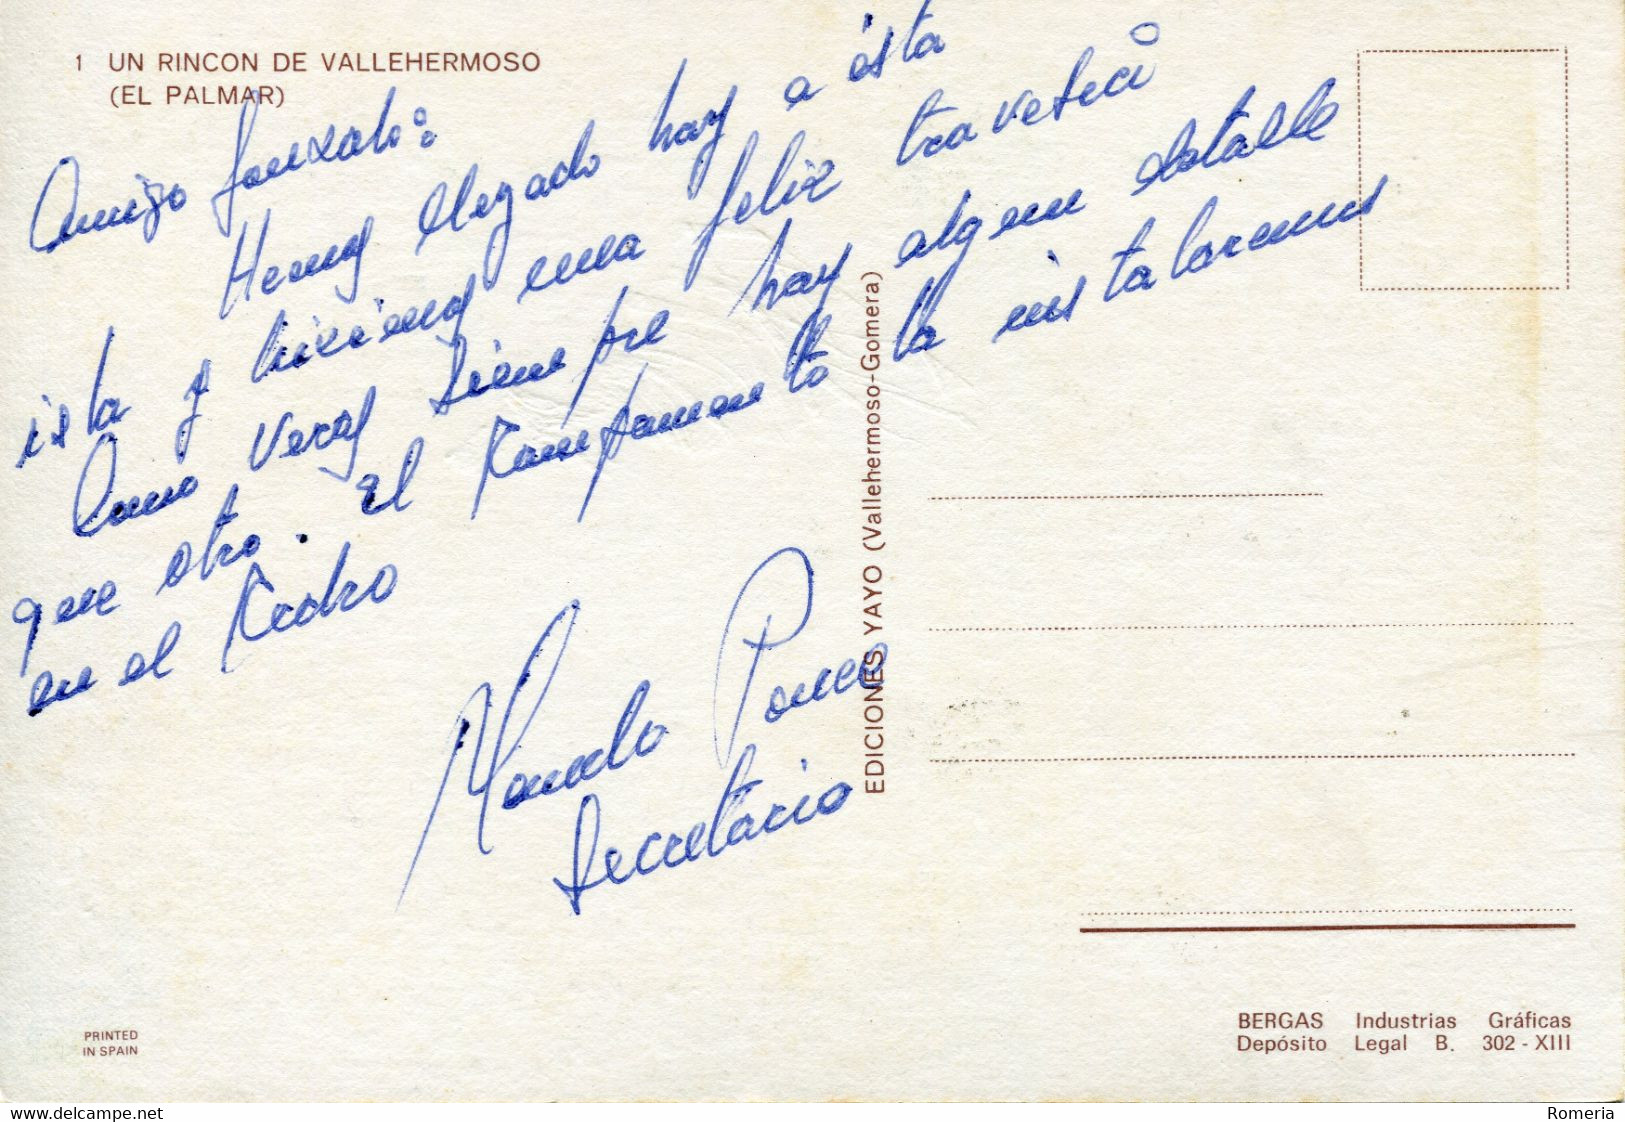 1 UN RINCON DE VALLEHERMOSO
(EL PALMAR)
Amigo Gonzalo:
Hemos llegado hoy a ésta
isla y hicimos una feliz travesía
Como veras siempre hay algun detalle
que otro. El Kampamento lo instalaremos
en el Kedro
Manolo Ponce
Secretario
EDICIONES YAYO (Vallehermoso-Gomera)
PRINTED
IN SPAIN
BERGAS Industrias Gráficas
Depósito Legal B. 302 - XIII
delcampe.net
Romeria